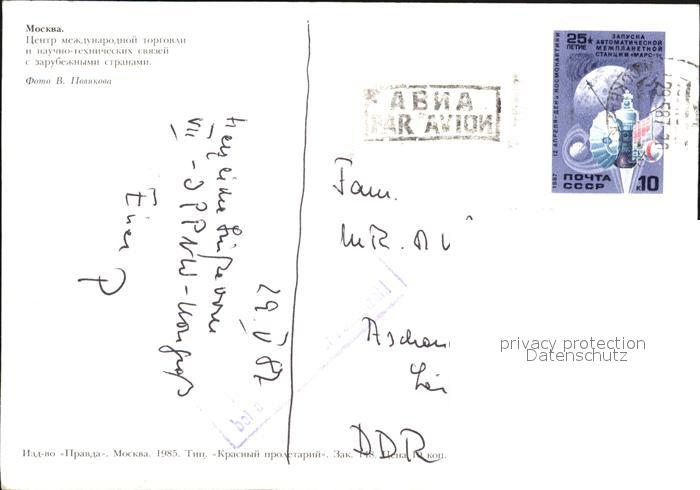 Москва.
Центр международной торговли
и научно-технических связей
с зарубежными странами.
Фото В. Полякова
25★
ЛЕТИЕ
ЗАПУСКА
АВТОМАТИЧЕСКОЙ
МЕЖПЛАНЕТНОЙ
СТАНЦИИ «МАРС-1»
12 АПРЕЛЯ-ДЕНЬ КОСМОНАВТИКИ
1987
ПОЧТА
СССР
К10
АВИА
PAR AVION
29. V 87
Herzliche Grüße vom
VII - IPPNW-Kongreß
Euer P
Fam.
DDR
privacy protection
Datenschutz
Изд-во «Правда». Москва. 1985. Тип. «Красный пролетарий». Зак. Цена коп.